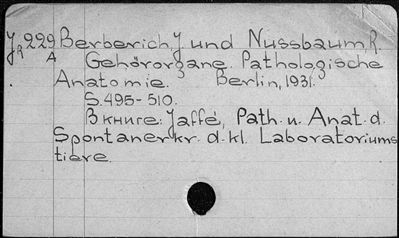 J 229 Berberich J und Nussbaum, R.
R
A Gehörorgane. Pathologische
Anatomie. Berlin, 1931.
S. 495-510.
В книге: Jaffé, Path. u. Anat. d.
Spontanerkr. d. kl. Laboratoriums
tiere.